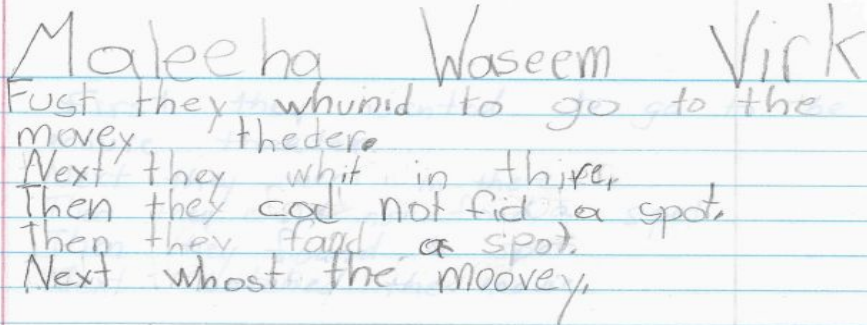 Maleeha Waseem Virk
Fust they whunid to go to the
movey theder.
Next they whit in thire,
Then they cod not fid a spot.
Then they faad a spot.
Next whost the moovey.